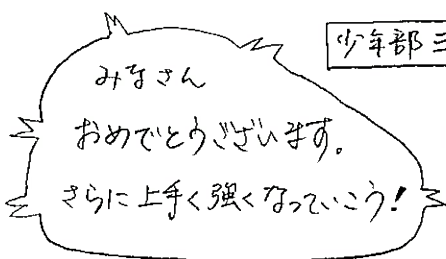 少年部 三
みなさん
おめでとうございます。
さらに上手く強くなっていこう!